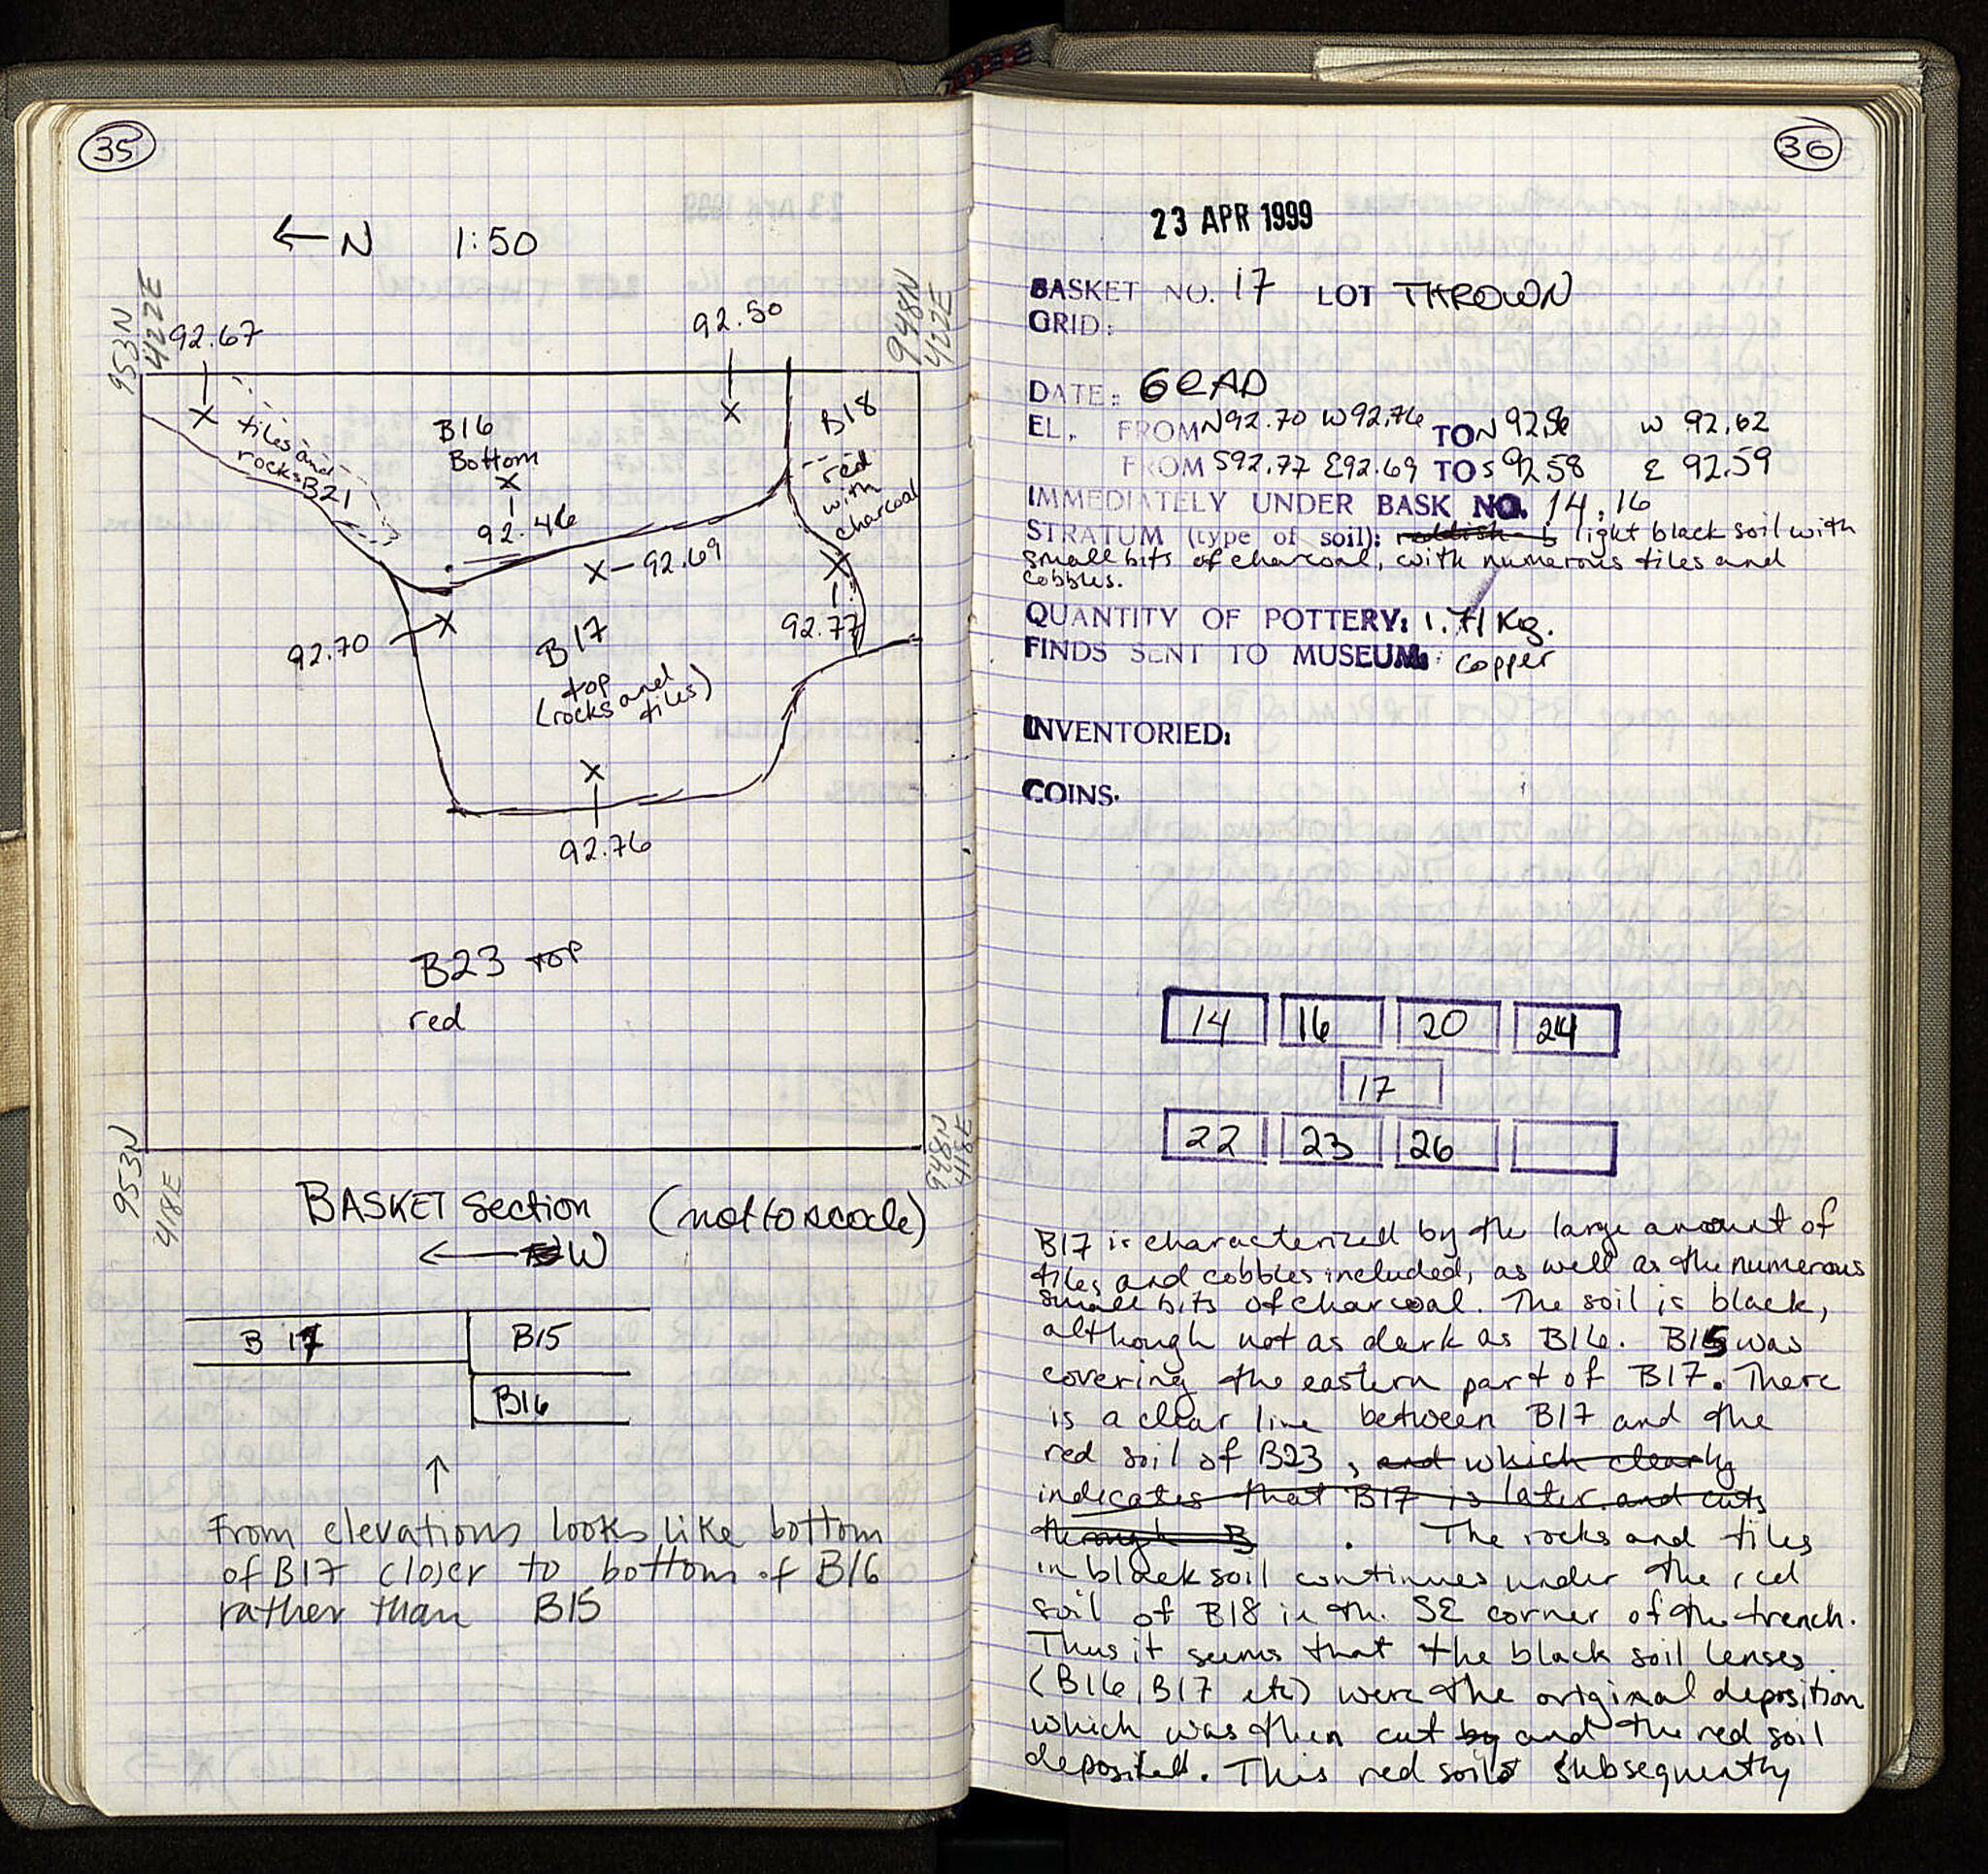 35
← N 1:50
953N
422E
92.67
92.50
948N
422E
tiles and
rocks B21
B16
Bottom
92.46
B18
red
with
charcoal
92.69
92.70
92.77
B17
top
(rocks and
tiles)
92.76
B23 TOP
red
953N
418E
948N
418E
BASKET Section (not to scale)
← W
B 17
B15
B16
↑
From elevations looks like bottom
of B17 closer to bottom of B16
rather than B15
36
23 APR 1999
BASKET NO. 17 LOT THROWN
GRID:
DATE: 6C AD
EL. FROM N92.70 W92.76 TO N 92.56 W 92.62
FROM S92.77 E92.69 TO S 92.58 E 92.59
IMMEDIATELY UNDER BASK NO. 14, 16
STRATUM (type of soil): reddish b light black soil with
small bits of charcoal, with numerous tiles and
cobbles.
QUANTITY OF POTTERY: 1.71 Kg.
FINDS SENT TO MUSEUM: copper
INVENTORIED:
COINS.
14 16 20 24
17
22 23 26
B17 is characterized by the large amount of
tiles and cobbles included, as well as the numerous
small bits of charcoal. The soil is black,
although not as dark as B16. B15 was
covering the eastern part of B17. There
is a clear line between B17 and the
red soil of B23, and which clearly
indicates that B17 is later and cuts
through B . The rocks and tiles
in black soil continues under the red
soil of B18 in the SE corner of the trench.
Thus it seems that the black soil lenses
(B16, B17 etc) were the original deposition
which was then cut by and the red soil
deposited. This red soil subsequently